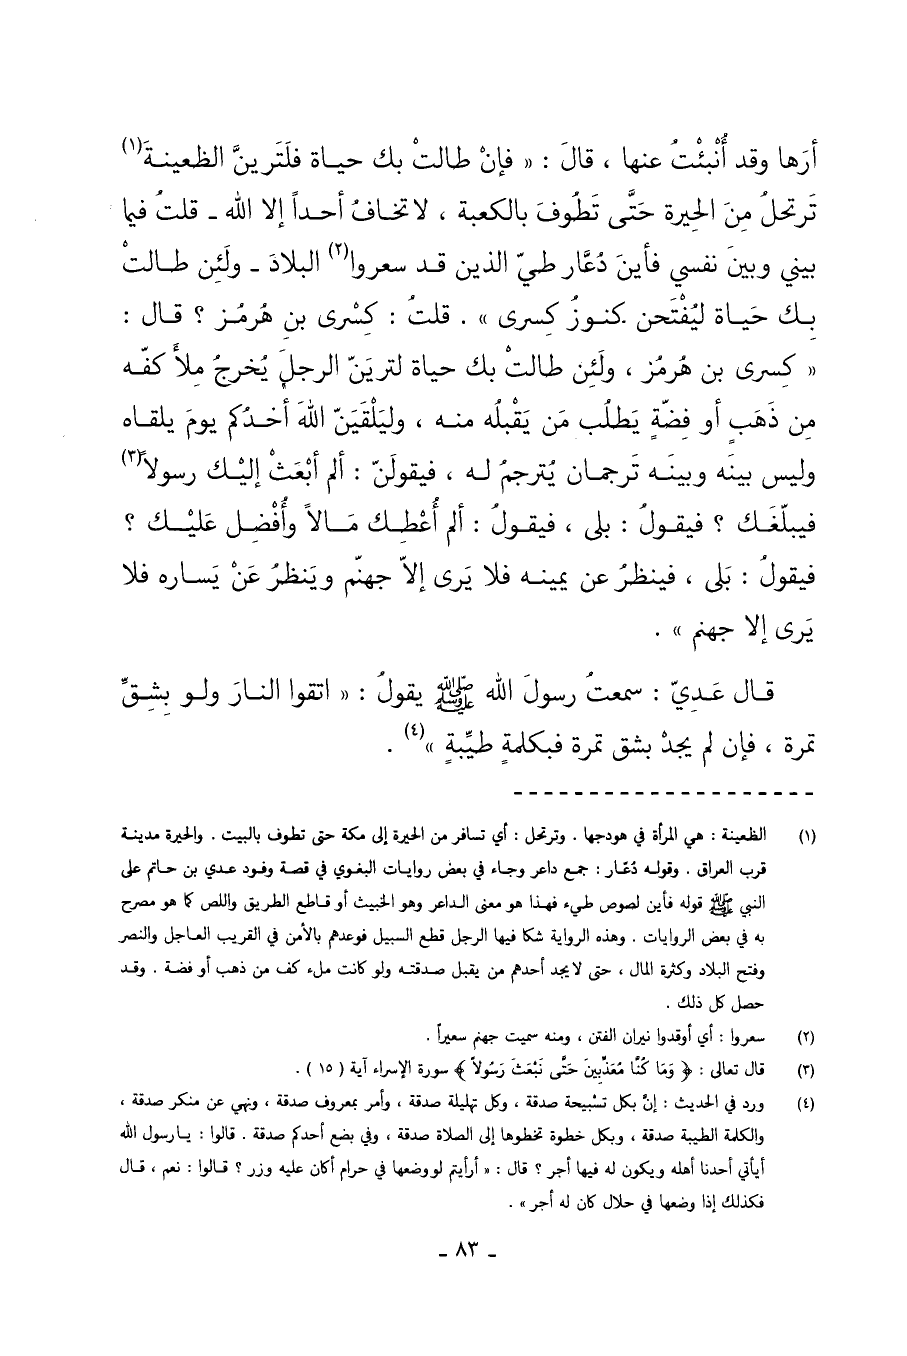 أرَها وقد أُنْبئْتُ عنها ، قالَ : « فإنْ طالتْ بك حياة فلَتَرينَّ الظعينةَ(١)
تَرتحلُ مِنَ الحِيرة حَتَّى تَطُوفَ بالكعبة ، لا تخافُ أحداً إلا الله ـ قلتُ فيما
بيني وبينَ نفسي فأينَ دُعَّار طيّ الذين قد سعروا(٢) البلادَ ـ ولَئِن طالتْ
بِك حَيَاة ليُفْتَحن كنوزُ كِسرى » . قلتُ : كِسْرى بن هُرمُز ؟ قال :
« كِسرى بن هُرمُز ، ولَئِن طالتْ بك حياة لتريَنّ الرجلَ يُخرجُ مِلأَ كفّه
من ذَهَبٍ أو فِضّةٍ يَطلُب مَن يَقْبلُه منه ، وليَلْقَيَنّ اللهَ أحدُكم يومَ يلقاه
وليس بينَه وبينَه تَرجمان يُترجمُ له ، فيقولَنّ : ألم أبْعَثْ إليْك رسولاً(٣)
فيبلّغَك ؟ فيقولُ : بلى ، فيقولُ : ألم أُعْطِك مَالاً وأُفْضِل عَليْك ؟
فيقولُ : بَلى ، فينظرُ عن يمينه فلا يَرى إلاّ جهنّم ويَنظرُ عَنْ يَساره فلا
يَرى إلا جهنم » .
قال عَديّ : سمعتُ رسولَ الله ﷺ يقولُ : « اتقوا النارَ ولو بِشِقِّ
تمرة ، فإن لم يجدْ بشق تمرة فبكلمةٍ طيِّبةٍ »(٤) .
(١) الظعينة : هي المرأة في هودجها . وترتحل : أي تسافر من الحيرة إلى مكة حتى تطوف بالبيت . والحيرة مدينة
قرب العراق . وقوله دُعّار : جمع داعر وجاء في بعض روايات البغوي في قصة وفود عدي بن حاتم على
النبي ﷺ قوله فأين لصوص طيء فهذا هو معنى الداعر وهو الخبيث أو قاطع الطريق واللص كما هو مصرح
به في بعض الروايات . وهذه الرواية شكا فيها الرجل قطع السبيل فوعدهم بالأمن في القريب العاجل والنصر
وفتح البلاد وكثرة المال ، حتى لا يجد أحدهم من يقبل صدقته ولو كانت ملء كف من ذهب أو فضة . وقد
حصل كل ذلك .
(٢) سعروا : أي أوقدوا نيران الفتن ، ومنه سميت جهنم سعيراً .
(٣) قال تعالى : ﴿ وَمَا كُنَّا مُعَذِّبِينَ حَتَّى نَبْعَثَ رَسُولاً ﴾ سورة الإسراء آية ( ١٥ ) .
(٤) ورد في الحديث : إنّ بكل تسْبيحة صدقة ، وكل تهليلة صدقة ، وأمر بمعروف صدقة ، ونهي عن منكر صدقة ،
والكلمة الطيبة صدقة ، وبكل خطوة تخطوها إلى الصلاة صدقة ، وفي بضع أحدكم صدقة . قالوا : يا رسول الله
أيأتي أحدنا أهله ويكون له فيها أجر ؟ قال : « أرأيتم لو وضعها في حرام أكان عليه وزر ؟ قالوا : نعم ، قال
فكذلك إذا وضعها في حلال كان له أجر » .
ـ ٨٣ ـ